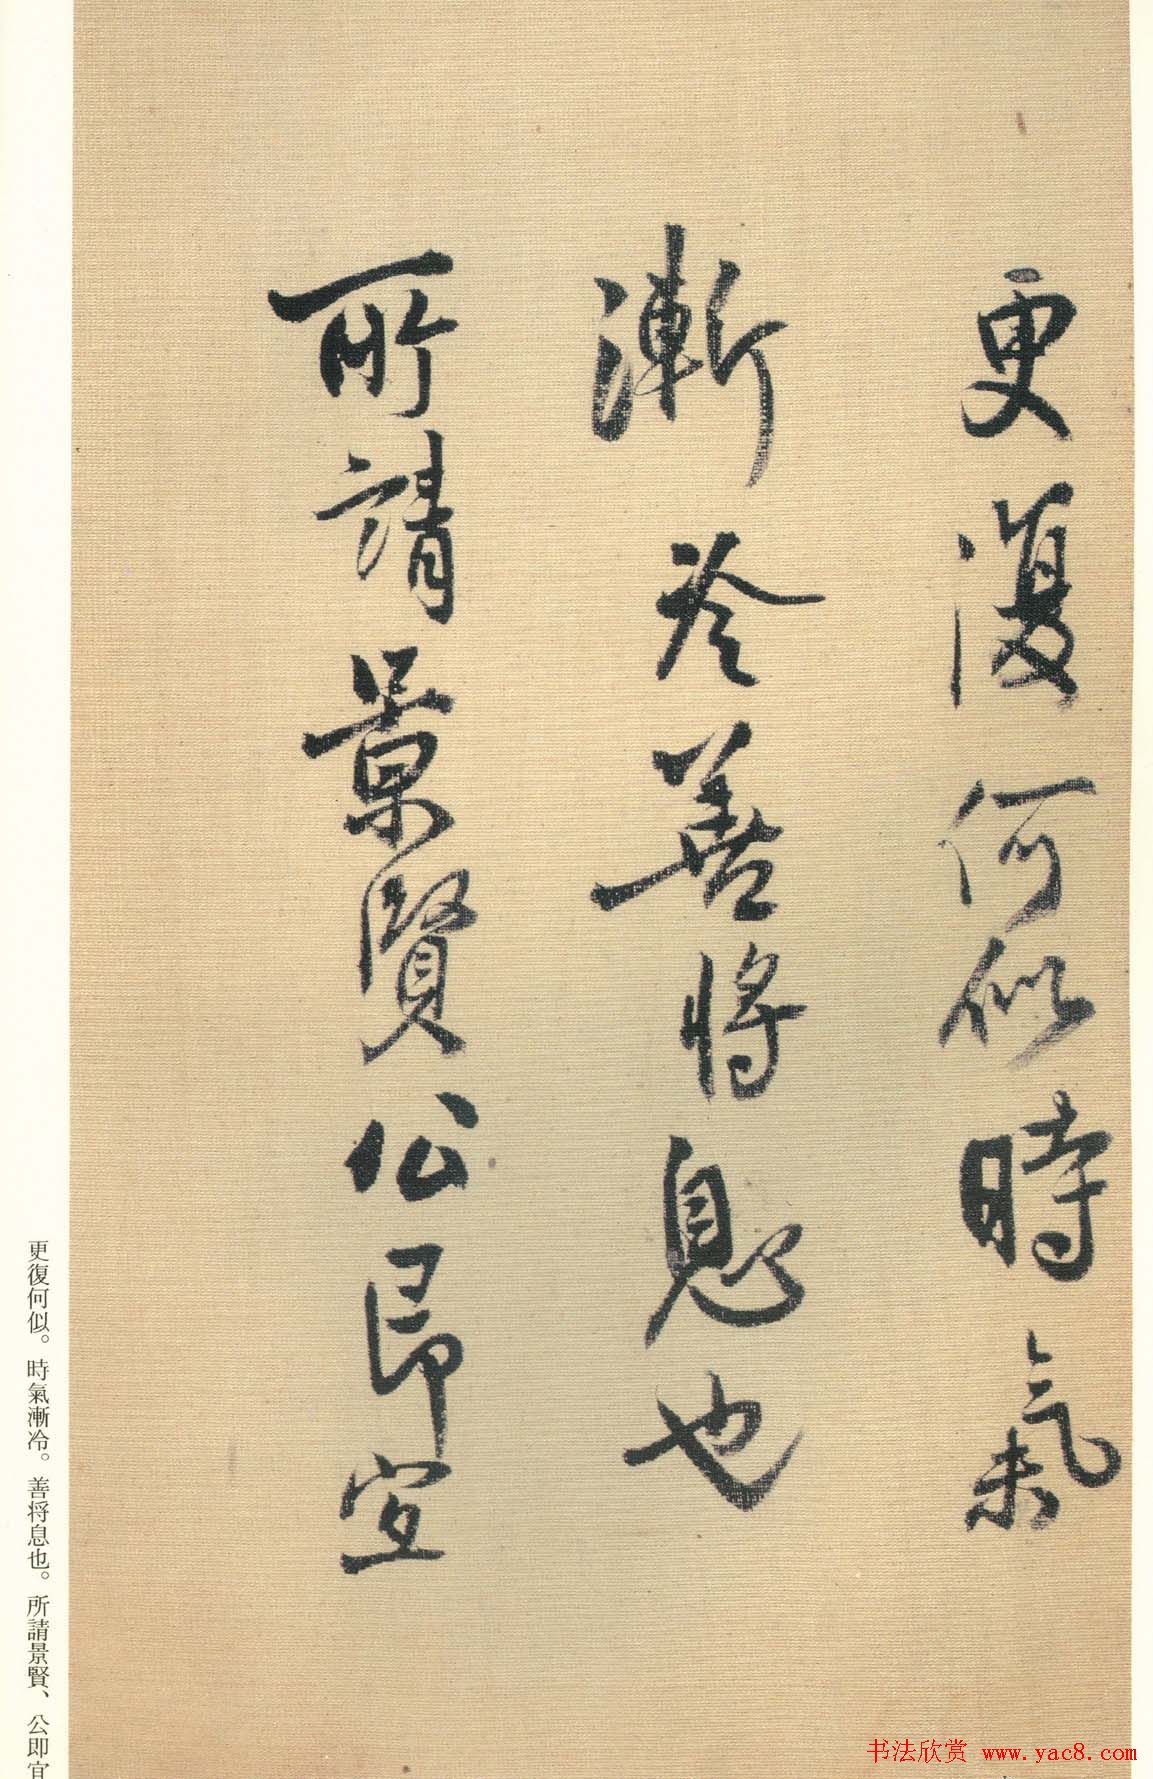 更復何似時氣
漸冷善將息也
所請景賢公即宜
更復何似。時氣漸冷。善将息也。所請景賢、公即宜
书法欣赏 www.yac8.com